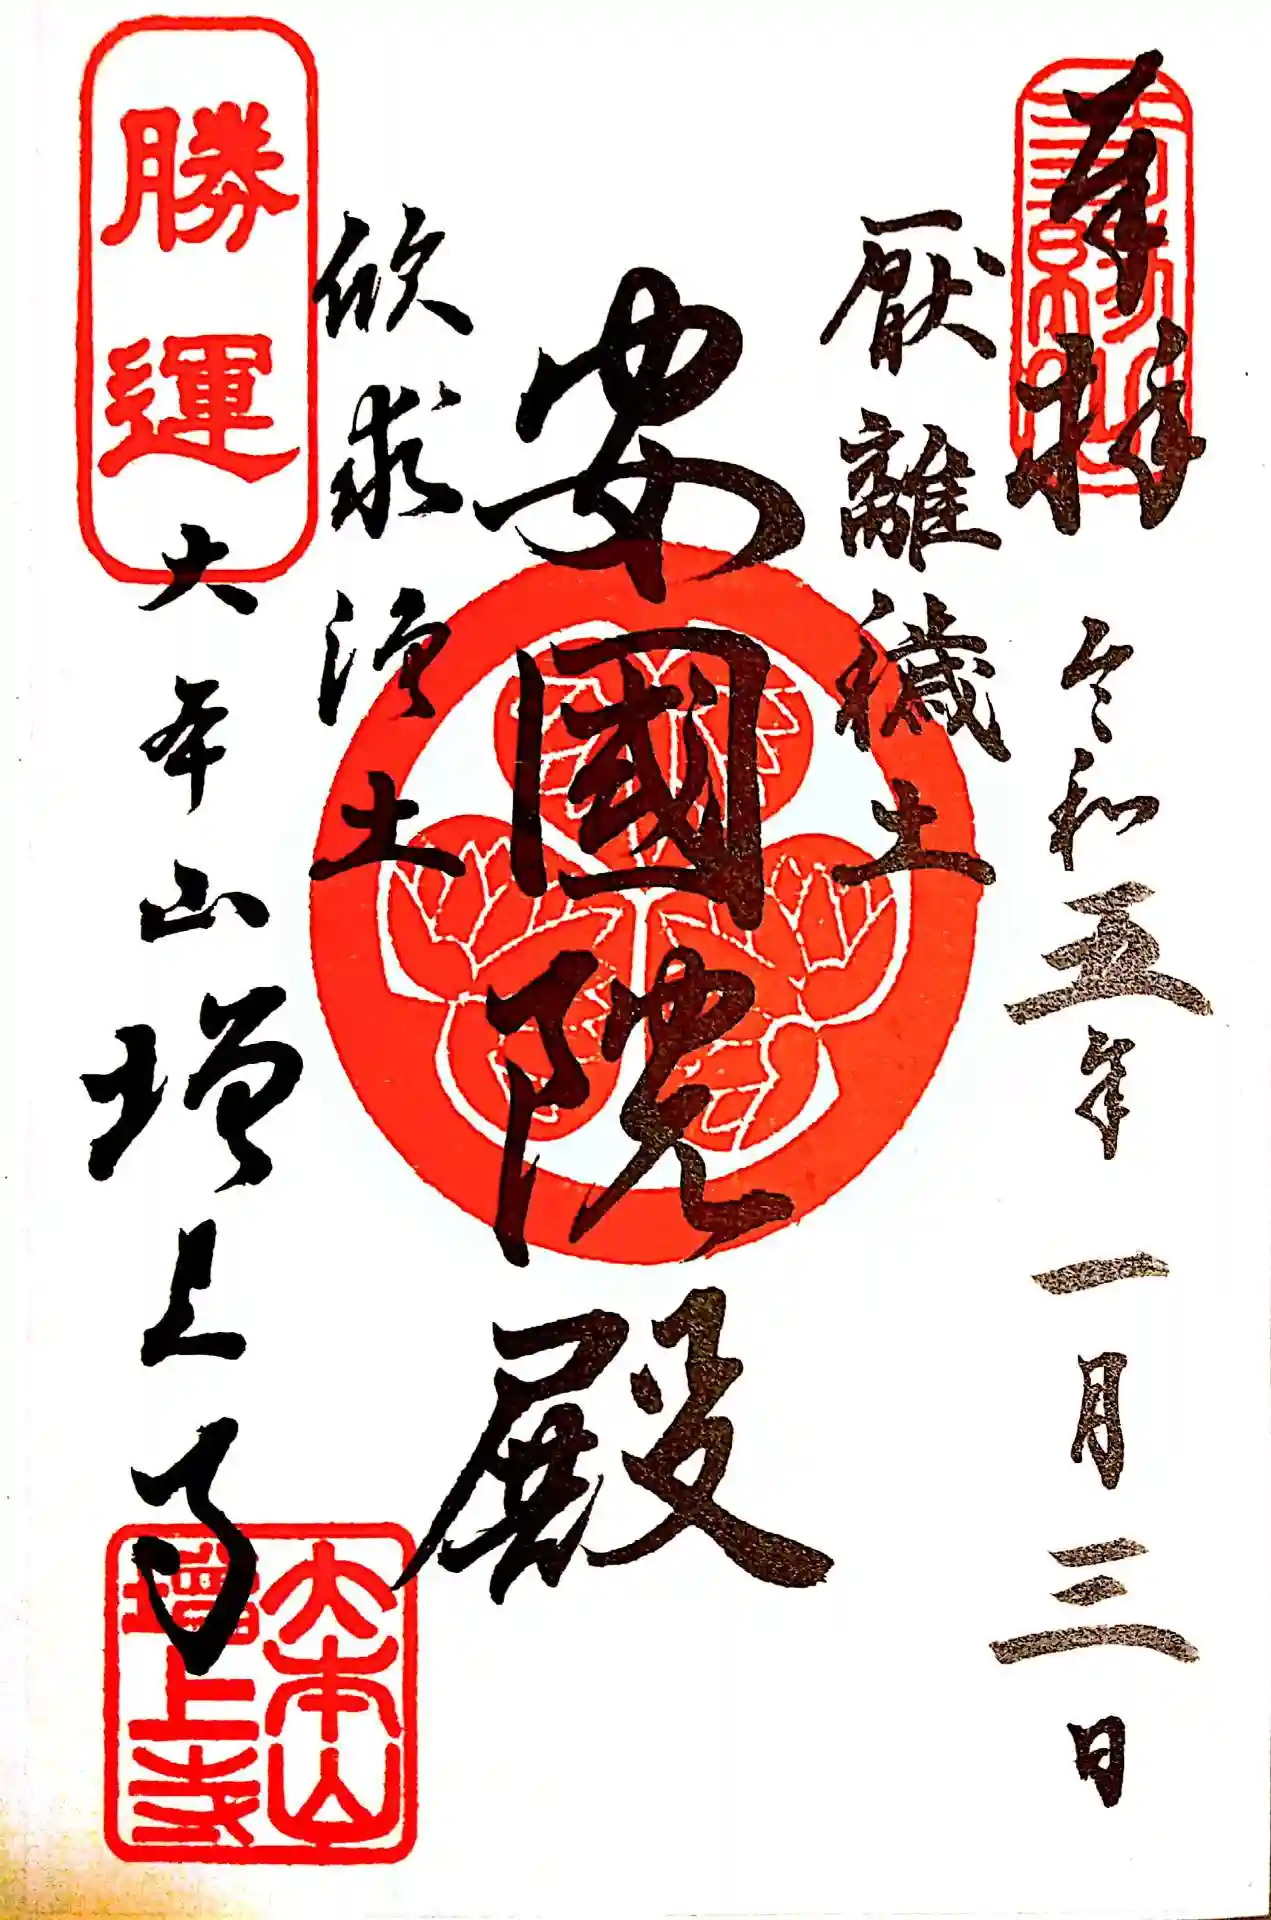 奉拝
三縁山
令和五年 一月三日
厭離穢土
安國院殿
欣求浄土
勝運
大本山増上寺
大本山
増上寺